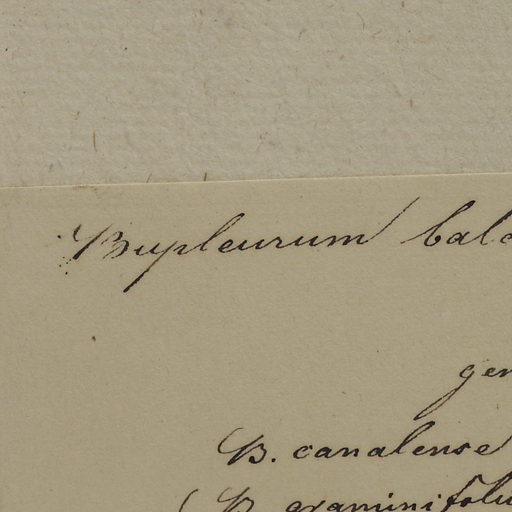 Bupleurum balc
ger
B. canalense
(B. graminifoliu